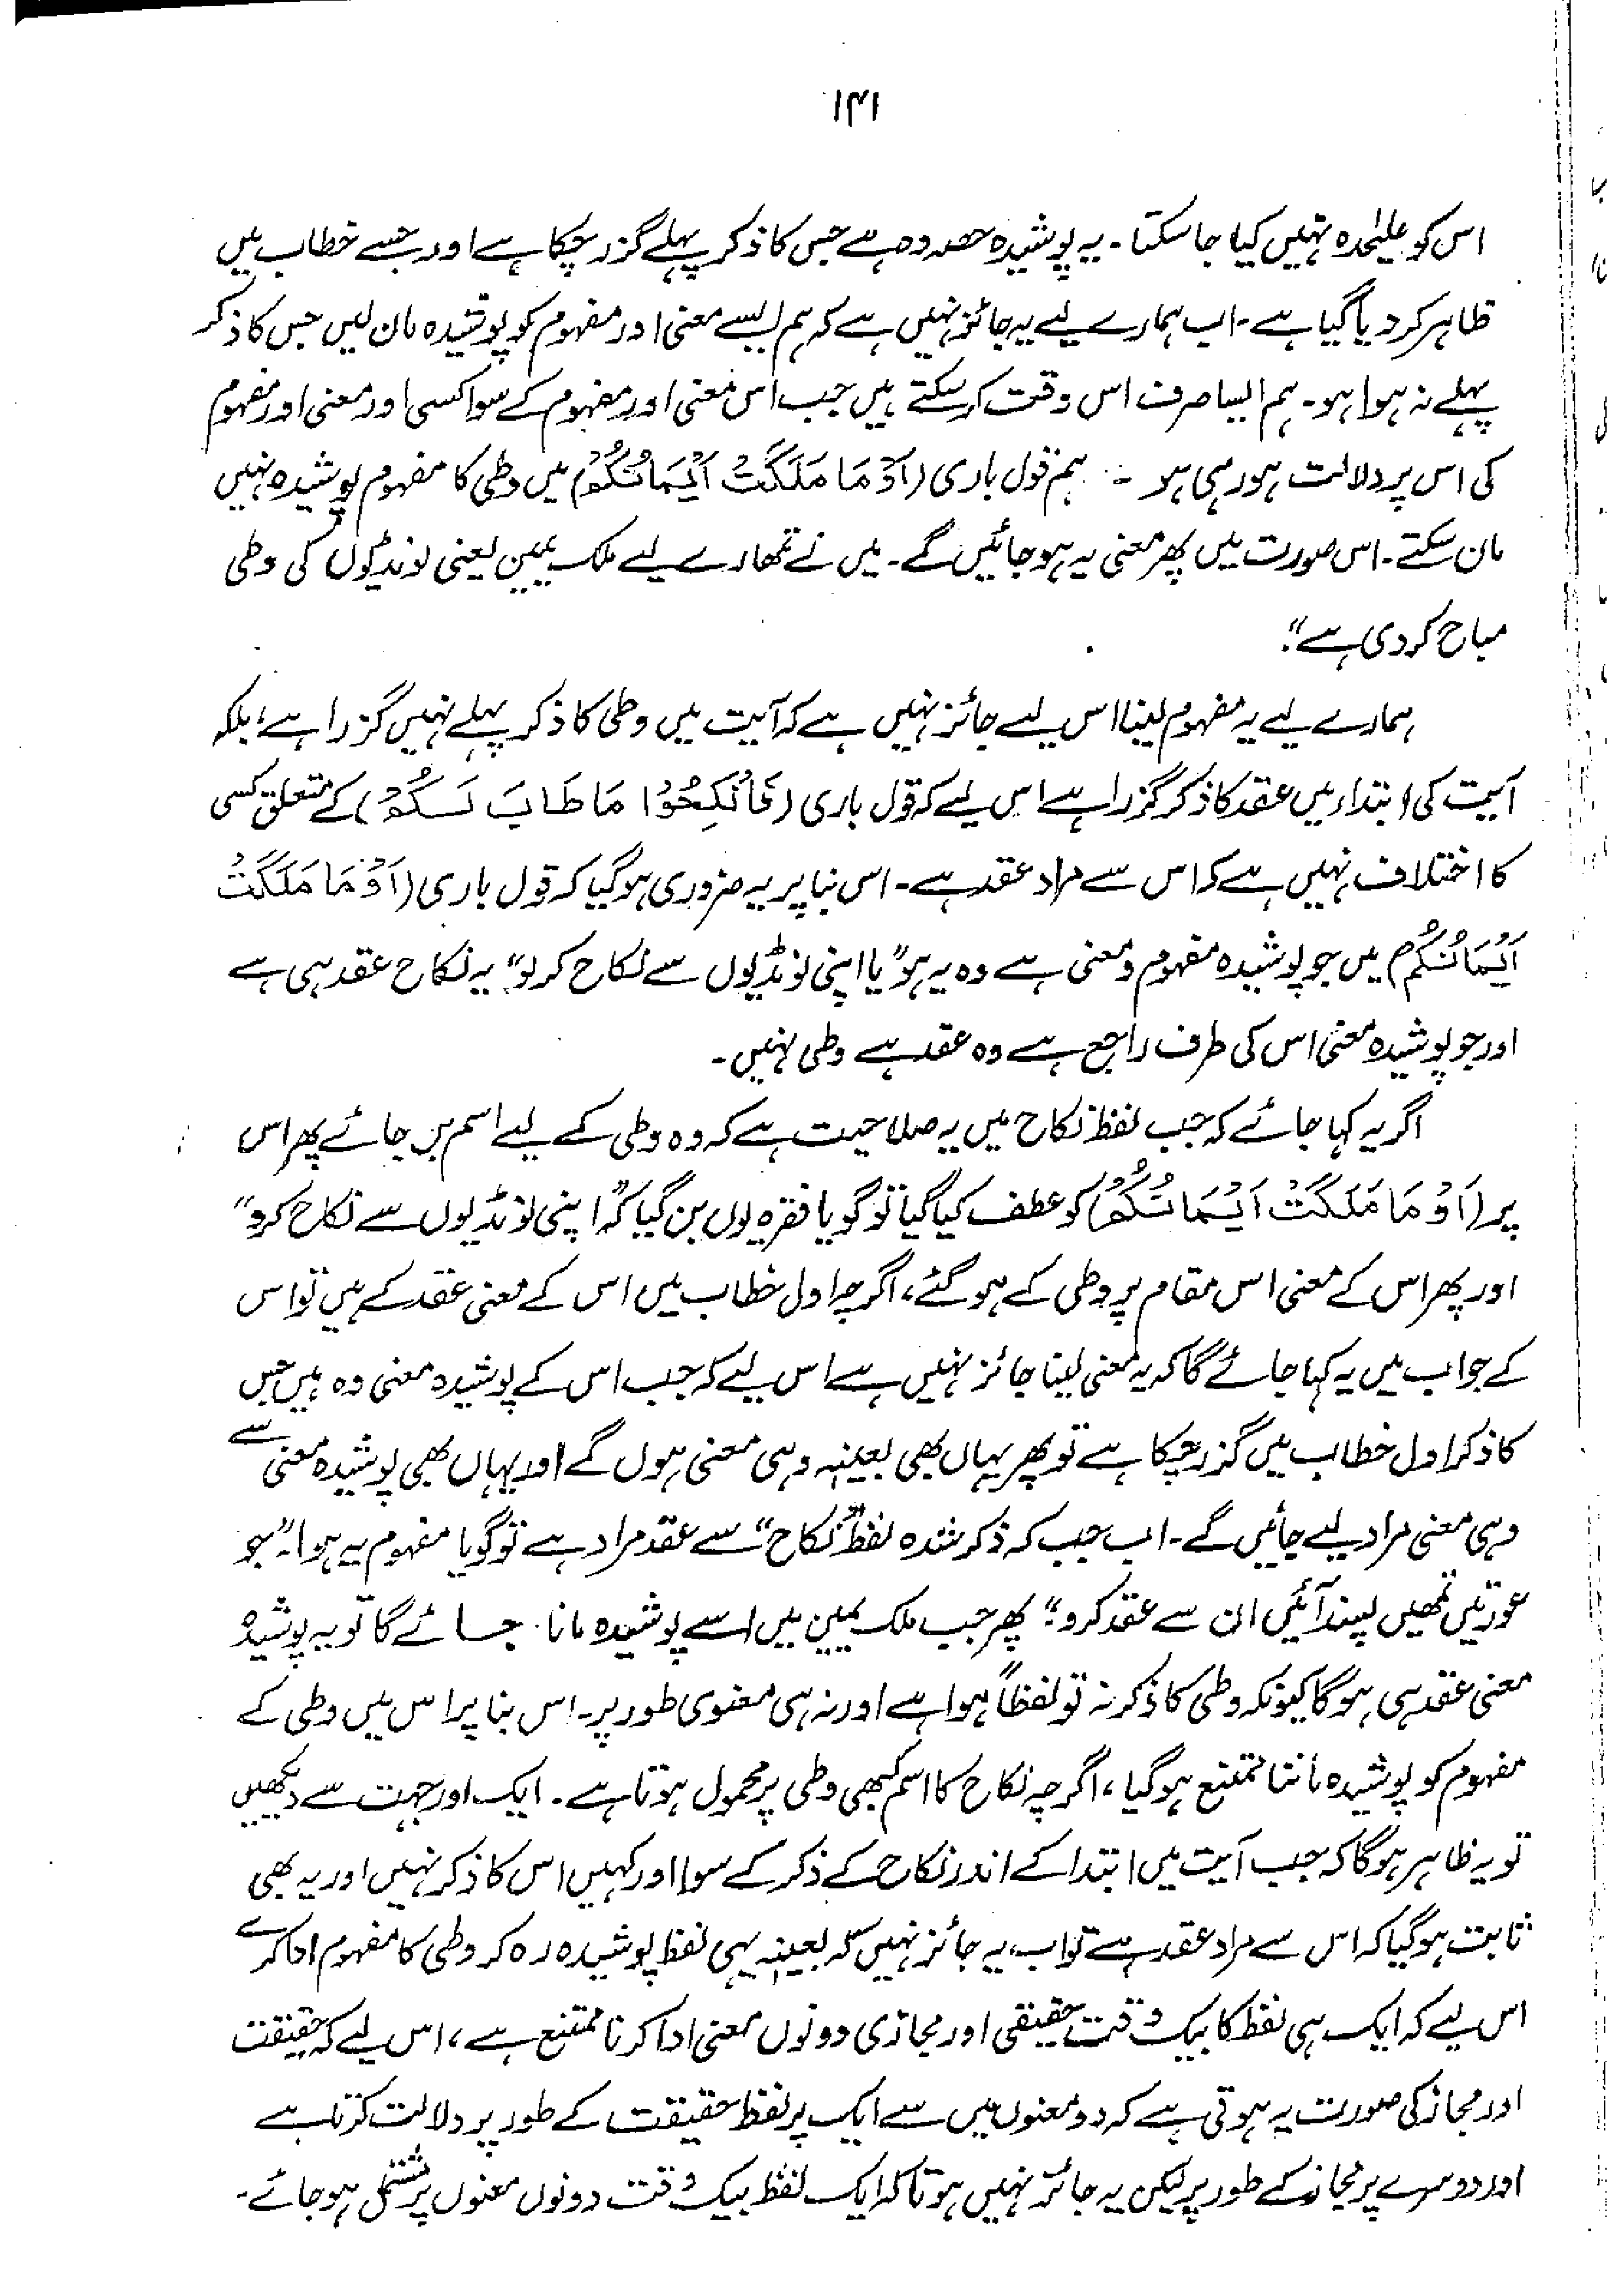 ۱۴۱
اس کو علیحدہ نہیں کیا جا سکتا۔ یہ پوشیدہ حصہ وہ ہے جس کا ذکر پہلے گزر چکا ہے اور جسے خطاب میں
ظاہر کر دیا گیا ہے۔ اب ہمارے لیے یہ جائز نہیں ہے کہ ہم ایسے معنی اور مفہوم کو پوشیدہ مان لیں جس کا ذکر
پہلے نہ ہوا ہو۔ ہم ایسا صرف اس وقت کر سکتے ہیں جب اس معنی اور مفہوم کے سوا کسی اور معنی اور مفہوم
کی اس پر دلالت ہو رہی ہو۔ ہم قول باری (اَوْ مَا مَلَکَتْ اَیْمَانُکُمْ) میں وطی کا مفہوم پوشیدہ نہیں
مان سکتے۔ اس صورت میں پھر معنی یہ ہو جائیں گے۔ میں نے تمھارے لیے ملک یمین یعنی لونڈیوں کی وطی
مباح کر دی ہے"۔
ہمارے لیے یہ مفہوم لینا اس لیے جائز نہیں ہے کہ آیت میں وطی کا ذکر پہلے نہیں گزرا ہے، بلکہ
آیت کی ابتداء میں عقد کا ذکر گزرا ہے اس لیے کہ قول باری (فَانْکِحُوْا مَا طَابَ لَکُمْ) کے متعلق کسی
کا اختلاف نہیں ہے کہ اس سے مراد عقد ہے۔ اس بنا پر یہ ضروری ہو گیا کہ قول باری (اَوْ مَا مَلَکَتْ
اَیْمَانُکُمْ) میں جو پوشیدہ مفہوم و معنی ہے وہ یہ ہو "یا اپنی لونڈیوں سے نکاح کر لو" یہ نکاح عقد ہی ہے
اور جو پوشیدہ معنی اس کی طرف راجع ہے وہ عقد ہے وطی نہیں۔
اگر یہ کہا جائے کہ جب لفظ نکاح میں یہ صلاحیت ہے کہ وہ وطی کے لیے اسم بن جائے پھر اس
پر (اَوْ مَا مَلَکَتْ اَیْمَانُکُمْ) کو عطف کیا گیا تو گویا فقرہ یوں بن گیا کہ "اپنی لونڈیوں سے نکاح کرو"
اور پھر اس کے معنی اس مقام پر وطی کے ہو گئے، اگرچہ اول خطاب میں اس کے معنی عقد کے ہیں تو اس
کے جواب میں یہ کہا جائے گا کہ یہ معنی لینا جائز نہیں ہے اس لیے کہ جب اس کے پوشیدہ معنی وہ ہیں جس
کا ذکر اول خطاب میں گزر چکا ہے تو پھر یہاں بھی بعینہٖ وہی معنی ہوں گے اور یہاں بھی پوشیدہ معنی سے
وہی معنی مراد لیے جائیں گے۔ اب جب کہ ذکر شدہ لفظ "نکاح" سے عقد مراد ہے تو گویا مفہوم یہ ہوا۔ "جو
عورتیں تمھیں پسند آئیں ان سے عقد کرو" پھر جب ملک یمین میں اسے پوشیدہ مانا جائے گا تو یہ پوشیدہ
معنی عقد ہی ہو گا کیونکہ وطی کا ذکر نہ تو لفظاً ہوا ہے اور نہ ہی معنوی طور پر۔ اس بنا پر اس میں وطی کے
مفہوم کو پوشیدہ ماننا ممتنع ہو گیا، اگرچہ نکاح کا اسم کبھی وطی پر محمول ہوتا ہے۔ ایک اور جہت سے دیکھیں
تو یہ ظاہر ہو گا کہ جب آیت میں ابتدا کے اندر نکاح کے ذکر کے سوا اور کہیں اس کا ذکر نہیں اور یہ بھی
ثابت ہو گیا کہ اس سے مراد عقد ہے تو اب یہ جائز نہیں کہ بعینہٖ یہی لفظ پوشیدہ رہ کر وطی کا مفہوم ادا کرے
اس لیے کہ ایک ہی لفظ کا بیک وقت حقیقی اور مجازی دونوں معنی ادا کرنا ممتنع ہے، اس لیے کہ حقیقت
اور مجاز کی صورت یہ ہوتی ہے کہ دو معنوں میں سے ایک پر لفظ حقیقت کے طور پر دلالت کرتا ہے
اور دوسرے پر مجاز کے طور پر لیکن یہ جائز نہیں ہوتا کہ ایک لفظ بیک وقت دونوں معنوں پر مشتمل ہو جائے۔